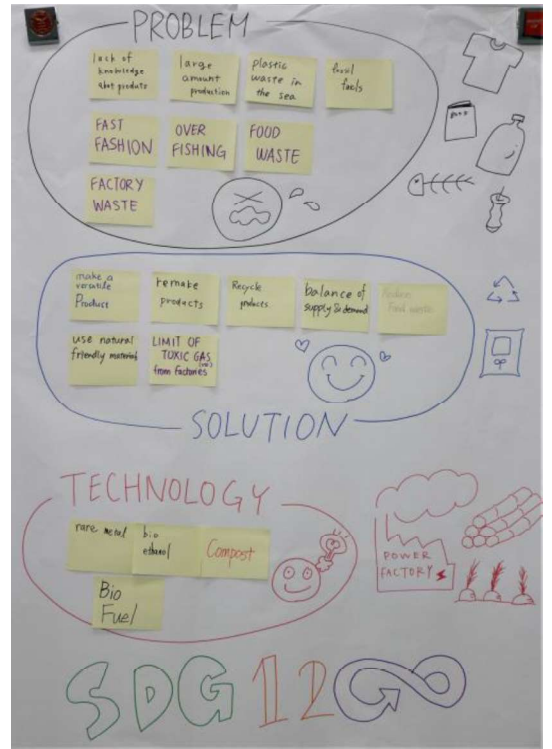 PROBLEM
lack of
knowledge
abot produts
large
amount
production
plastic
waste in
the sea
fossil
fuels
FAST
FASHION
OVER
FISHING
FOOD
WASTE
FACTORY
WASTE
make a
versatile
Product
remake
products
Recycle
products
balance of
supply & demand
Reduce
Food waste
use natural
friendly material
LIMIT OF
TOXIC GAS
from factories
SOLUTION
TECHNOLOGY
rare metal
bio
ethanol
Compost
Bio
Fuel
POWER
FACTORY
SDG 12